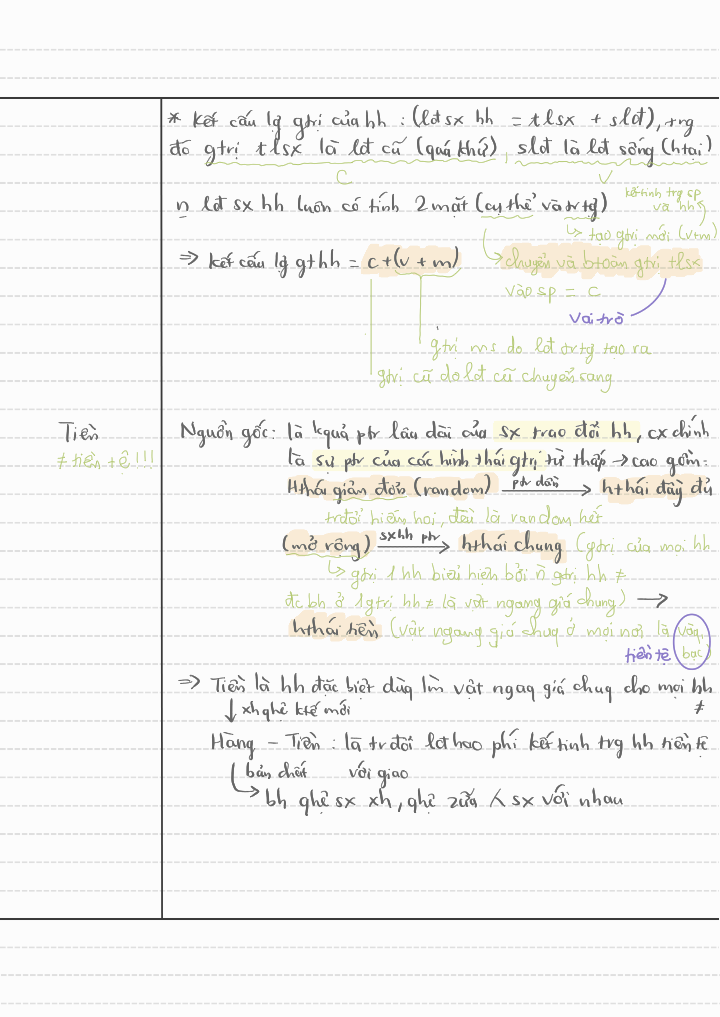 * kết cấu lg gtrị của hh : (lđsx hh = tlsx + slđ), trg
đó gtrị tlsx là lđ cũ (quá khứ), slđ là lđ sống (htại)
C
V
n lđ sx hh luôn có tính 2 mặt (cụ thể và trtg)
kết tinh trg sp
và hh
↳ tạo gtrị mới (v+m)
⇒ kết cấu lg gt hh = c + (v + m)
↳ chuyển và btoàn gtrị tlsx
vào sp = c
vai trò
gtrị ms do lđ trtg tạo ra
gtrị cũ do lđ cũ chuyển sang
Tiền
≠ tiền tệ !!!
Nguồn gốc: là kquả ptr lâu dài của sx trao đổi hh, cx chính
là sự ptr của các hình thái gtrị từ thấp → cao gồm:
Hthái giản đơn (random) ptr dần → hthái đầy đủ
trđổi hiếm hoi, đều là random hết
(mở rộng) sxhh ptr → hthái chung (gtrị của mọi hh
↳ gtrị 1 hh biểu hiện bởi n gtrị hh ≠
đc bh ở 1 gtrị hh ≠ là vật ngang giá chung) →
hthái tiền (vật ngang giá chug ở mọi nơi là vàg,
tiền tệ bạc)
⇒ Tiền là hh đặc biệt dùg làm vật ngag giá chug cho mọi hh
≠
↓ xh ghệ ktế mới
Hàng - Tiền : là trđổi lđ hao phí kết tinh trg hh tiền tệ
bản chất với giao
↳ bh ghệ sx xh, ghệ zữa 人 sx với nhau